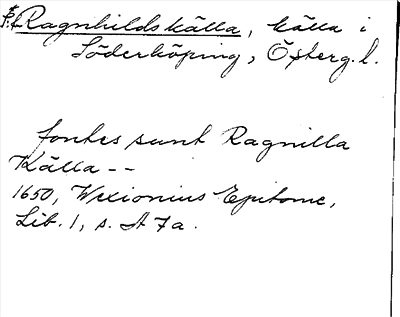 Ragnhilds källa, källa i
Söderköping, Österg. l.
fontes sunt Ragnilla
Källa --
1650, Wexionius Epitome,
Lib. 1, s. A 7a.